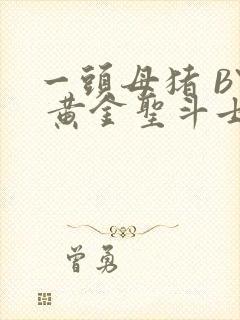 一頭母猪 BY
黄金聖斗士
曾勇